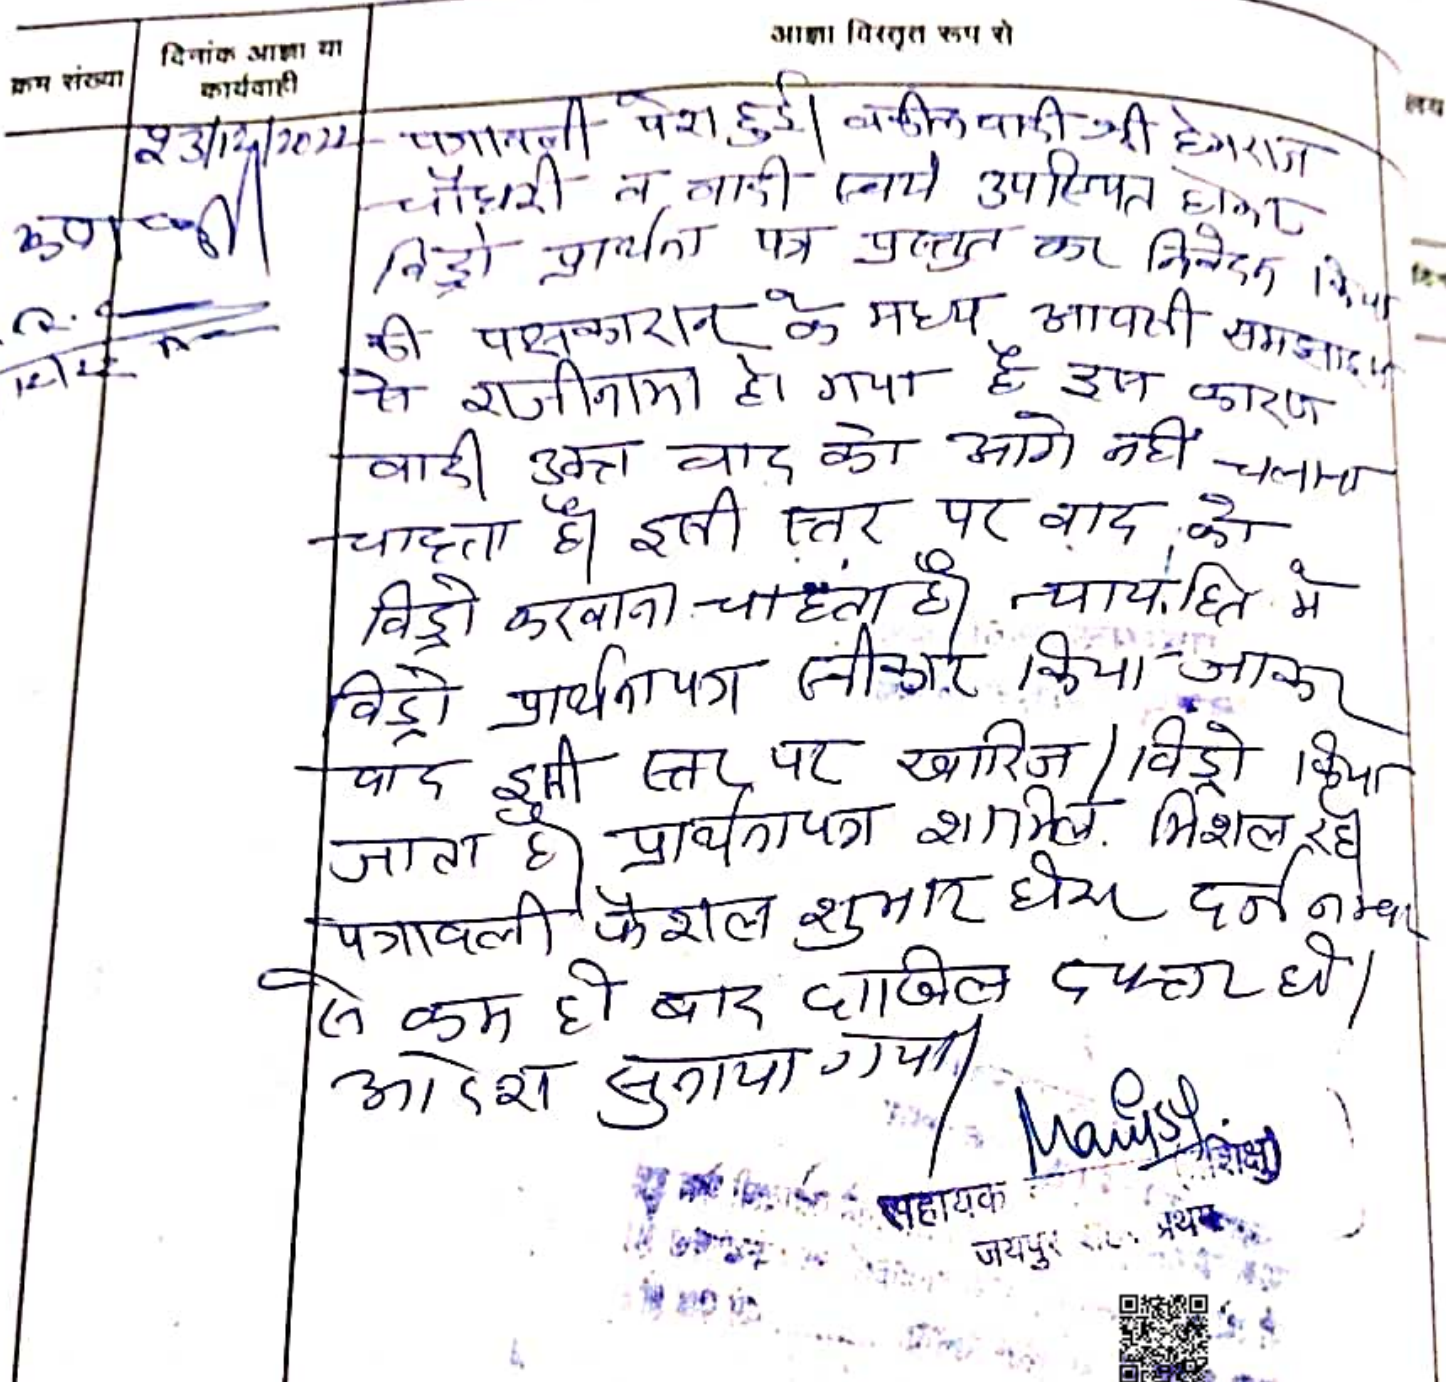 क्रम संख्या
दिनांक आज्ञा या
कार्यवाही
आज्ञा विस्तृत रूप से
23/12/2022
पत्रावली पेश हुई। वकील वादी श्री हेमराज
चौधरी व वादी स्वयं उपस्थित होकर
विड्रो प्रार्थना पत्र प्रस्तुत कर निवेदन किया
की पक्षकारान के मध्य आपसी समझाइश
से राजीनामा हो गया है इस कारण
वादी उक्त वाद को आगे नहीं चलाना
चाहता है। इसी स्तर पर वाद को
विड्रो करवाना चाहता है। न्यायहित मे
विड्रो प्रार्थनापत्र स्वीकार किया जाकर
वाद इसी स्तर पर खारिज / विड्रो किया
जाता है। प्रार्थनापत्र शामिल मिशल रहे
पत्रावली फैशल शुमार होकर दर्ज नम्बर
से कम हो बाद दाखिल दफ्तर हो।
आदेश सुनाया गया।
सहायक
जयपुर प्रथम